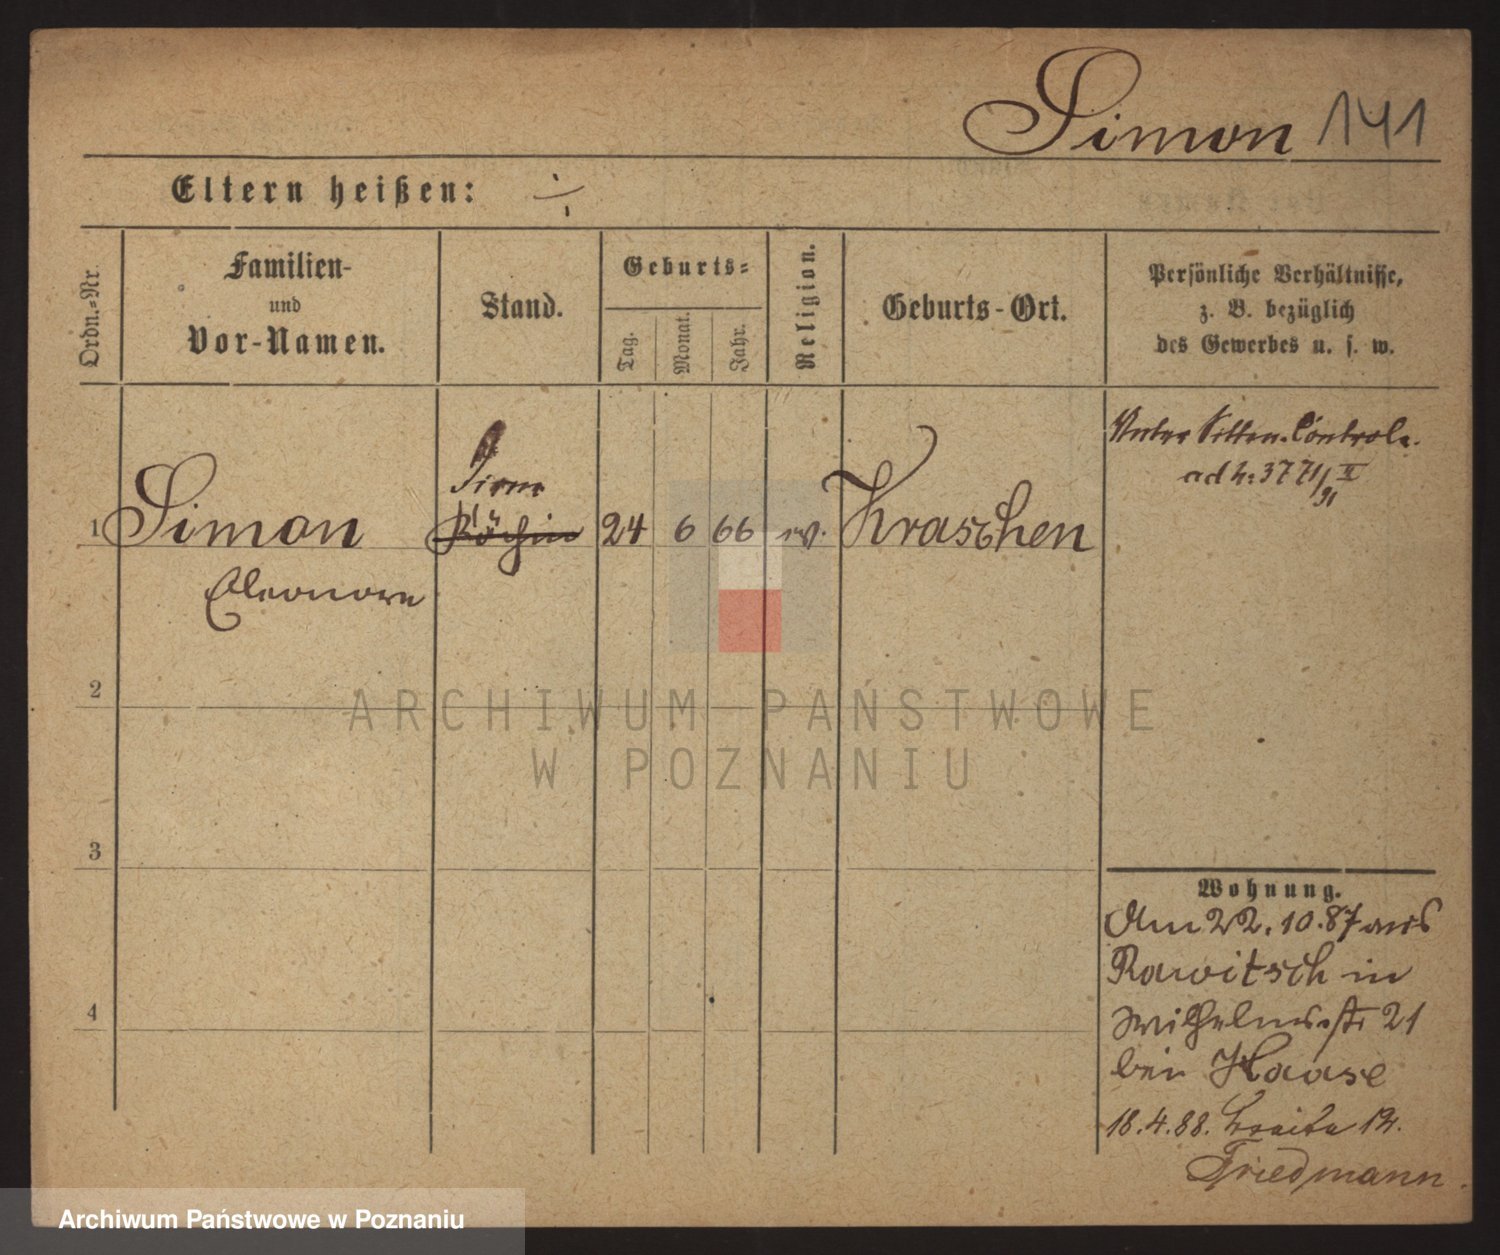 Simon 141
Eltern heißen: ÷
Ordn.-Nr.
Familien-
und
Vor-Namen.
Stand.
Geburts-
Tag.
Monat.
Jahr.
Religion.
Geburts-Ort.
Persönliche Verhältnisse,
z. B. bezüglich
des Gewerbes u. s. w.
Unter Sitten-Controle.
ad 4: 3771/91 II
1 Simon
Eleonore
Dirne
Köchin
24 6 66 ev. Kraschen
2
3
4
ARCHIWUM PAŃSTWOWE
W POZNANIU
Wohnung.
Am 22.10.87 aus
Rawitsch in
Wilhelmsstr 21
bei Haase
18.4.88. Breite 14.
Friedmann.
Archiwum Państwowe w Poznaniu